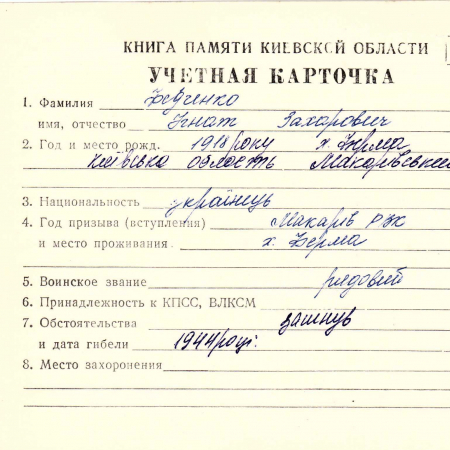 КНИГА ПАМЯТИ КИЕВСКОЙ ОБЛАСТИ
УЧЕТНАЯ КАРТОЧКА
1. Фамилия
имя, отчество Ігнат Захарович
2. Год и место рожд. 1918 року х. Берма
Київська область Макарівський
3. Национальность українець
4. Год призыва (вступления) Макарів РВК
и место проживания х. Берма
5. Воинское звание рядовий
6. Принадлежность к КПСС, ВЛКСМ
7. Обстоятельства загинув
и дата гибели 1944 році.
8. Место захоронения